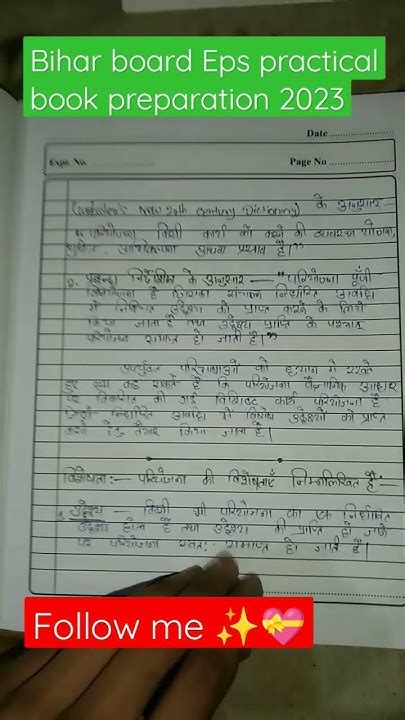 Bihar board Eps practical
book preparation 2023
Date
Expt. No.
Page No
(Webster's New 20th century Dictionary) के अनुसार —
"परियोजना किसी कार्य को करने की व्यवस्था योजना,
अथवा प्रस्ताव है।"
2. प्रबन्ध निर्देशिका के अनुसार — "परियोजना पूँजी
निर्धारित
में निश्चित उद्देश्य को प्राप्त करने के लिये
किया जाता है तथा उद्देश्य प्राप्ति के पश्चात्
परियोजना समाप्त हो जाती है।"
उपर्युक्त परिभाषाओं को ध्यान में रखते
हुए कह सकते हैं कि परियोजना वैज्ञानिक आधार
विकसित की गई कार्य परियोजना है
निर्धारित उद्देश्यों को प्राप्त
करने हेतु तैयार किया जाता है।
विशेषता:— परियोजना की विशेषताएँ निम्नलिखित है:—
उद्देश्य — किसी भी परियोजना का एक निर्धारित
उद्देश्य होता है तथा उद्देश्य की प्राप्ति हो जाने
पर परियोजना स्वतः समाप्त हो जाती है।
Follow me ✨💝